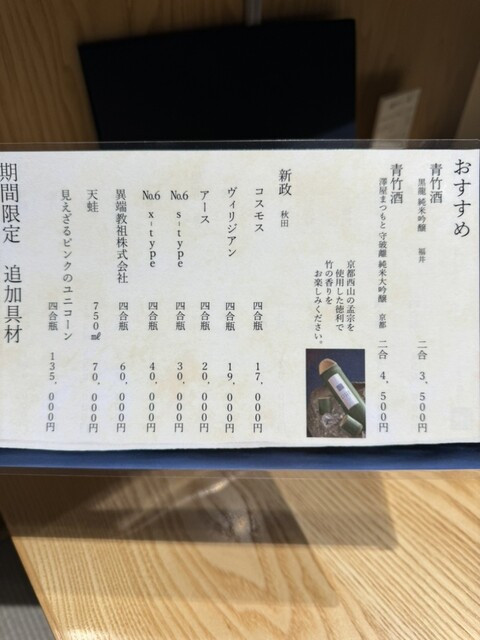 おすすめ
青竹酒
黒龍 純米吟醸 福井 二合 3,500円
青竹酒
澤屋まつもと 守破離 純米大吟醸 京都 二合 4,500円
京都西山の孟宗を
使用した徳利で
竹の香りを
お楽しみください。
新政 秋田
コスモス 四合瓶 17,000円
ヴィリジアン 四合瓶 19,000円
アース 四合瓶 20,000円
No.6 s-type 四合瓶 30,000円
No.6 x-type 四合瓶 40,000円
異端教祖株式会社 四合瓶 60,000円
天蛙 750㎖ 70,000円
見えざるピンクのユニコーン 四合瓶 135,000円
期間限定 追加具材